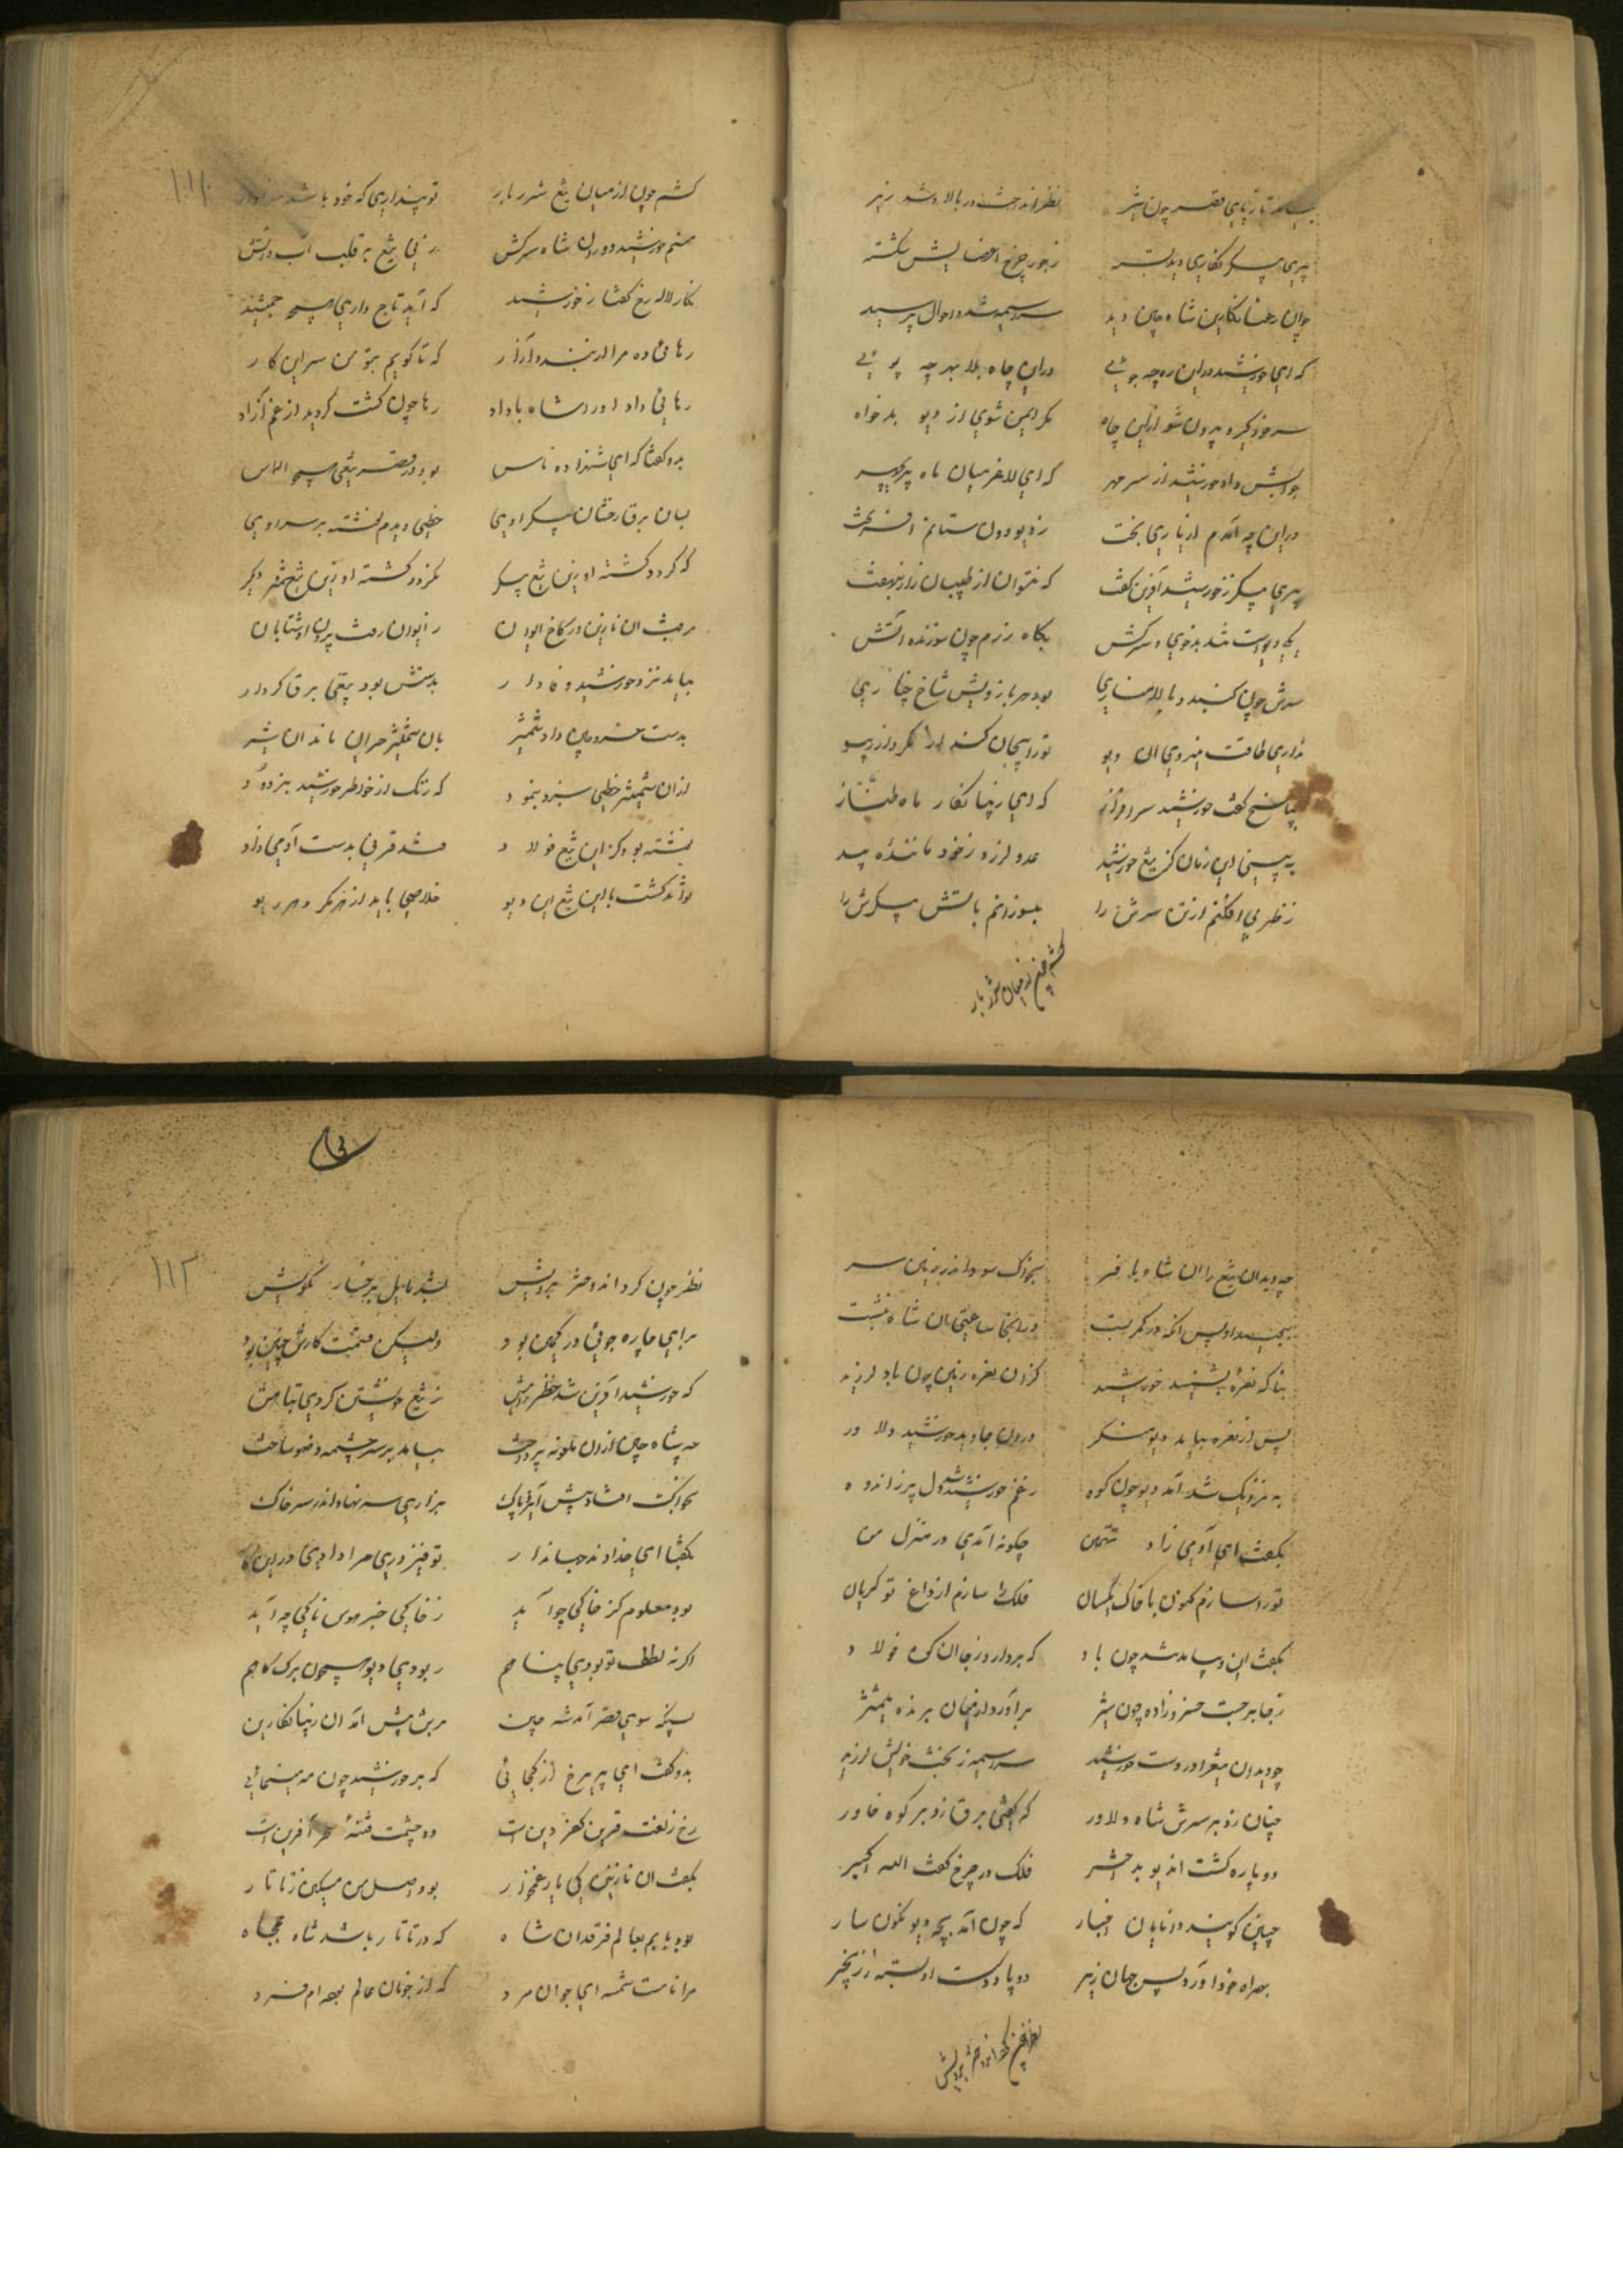 بیامد تا بپای قصر چون شیر نظر انداخت در بالا و شد زیر
پری پیکر نگاری دید بسته ز جور چرخ اعضایش شکسته
جوان رعنا نگارین شاه چین دید سراسیمه شد و احوال پرسید
که ای خورشید در این ره چه جوئی در این چاه بلا بهر چه پوئی
سر خود گیر و بیرون شو ازین چاه مگر ایمن شوی از دیو بدخواه
جوابش داد خورشید از سر مهر که ای لاغر میان ماه پریچهر
در این چه آمدم از یاری بخت ز دیو دون ستانم افسر و تخت
پری پیکر ز خورشید آفرین گفت که نتوان از طبیبان راز بنهفت
یکی دیو است تند بدخوی و سرکش بگاه رزم چون سوزنده آتش
سرش چون گنبد و بالا مناری بود هر بازویش شاخ چناری
نداری طاقت نیروی آن دیو تو را بیجان کند از مکر و از ریو
بپاسخ گفت خورشید سرافراز که ای زیبا نگار ماه طناز
به بینی این زمان کز تیغ خورشید عدو لرزد ز خود ماننده بید
ز ظهر می افکنم از تن سرش را بسوزانم بآتش پیکرش را
کشم چون از میان تیغ شرربار
۱۱۱
کشم چون از میان تیغ شرربار تو پنداری که خود باشد
منم خورشید دوران شاه سرکش زنم تیغ به قلب آب و آتش
نگار لاله رخ گفتا ز خورشید که آید تاج داری همچو جمشید
رهائی ده مرا از بند و آزار که تا گویم بتو من سر این کار
رهائی داد او را شاه با داد رها چون گشت گردید از غم آزاد
بدو گفتا که ای شهزاده ناس بود در قصر تیغی همچو الماس
بسان برق رخشان پیکر اوی خطی دیدم نبشته بر سر اوی
که گردد کشته او زین تیغ پیکر نگردد کشته او زین تیغ دیگر
برفت آن نازنین در کاخ ایوان ز ایوان رفت بیرون او شتابان
بیامد نزد خورشید وفادار بدستش بود تیغی برق کردار
بدست خسرو چین داد شمشیر بان شمشیر حیران ماند آن شیر
از آن شمشیر خطی سبز بنمود که زنگ از خاطر خورشید بزدود
نبشته بود کز این تیغ فولاد فتد قرنی بدست آدمی زاد
تواند کشت با این تیغ این دیو خلاصی یابد از مکر و هر ریو
چو دید آن تیغ را آن شاه با فر بخواک سود اندر زمین سر
ببوسید او پس آنگه در کمر بست در آنجا ساعتی آن شاه بنشست
بناگه نعره بشنید خورشید کز آن نعره زمین چون باد لرزید
پس از نعره بیامد دیو منکر درون جاوید خورشید دلاور
به نزدیک شد آمد دیو چون کوه ز غم خورشید شد دل پر ز اندوه
بگفت ای آدمی زاد تهمتن چگونه آمدی در منزل من
تو را سازم کنون با خاک یکسان فلک را سازم از داغ تو گریان
بگفت این و بیامد شد چون باد که بردارد ز جا آن کوه فولاد
ز جا برجست خسروزاده چون شیر برآورد از میان برنده شمشیر
چو دید آن تیغ را در دست خورشید سراسیمه ز بخت خویش لرزید
چنان زد بر سرش شاه دلاور که گفتی برق زد بر کوه خاور
دو پاره گشت آن دیو بد اختر فلک در چرخ گفت الله اکبر
چنین گویند دانایان اخبار که چون آمد بچه دیو نگون سار
بهمراه خود آورد پس جهان زیر دو پا و دست او بسته ز زنجیر
نظر چون کرد اندر مهر برویش
۱۱۲
نظر چون کرد اندر مهر برویش بشد مایل برخسار نکویش
برای چاره جوئی در کمین بود ولیکن قسمت کارش چنین بود
که خورشید آفرین شد ز تیغ خویشتن کردی تباهش
چه شاه چین از آن پرداخت بیامد بر سر چشمه وضو ساخت
بخواک افتاد پیش ایزد پاک بزاری سر نهاد اندر سر خاک
بگفتا ای خداوند جهاندار تو فیروزی مرا دادی در این کار
بود معلوم کز خاکی چو آید ز خاکی خیر موس ناکی چه آید
اگر نه لطف تو بودی پناهم ربودی دیو همچون برگ کاهم
پس آنگه سوی قصر آمد شه چین برش پیش آمد آن زیبا نگارین
بدو گفت ای پریرخ از کجائی که بر خورشید چون مه مینمائی
رخ زلفت قرین کفر و دین است دو چشمت فتنه سحر آفرین است
بگفت آن نازنین کی یار غمخوار بود اصل من مسکین ز تاتار
بود بابم بعالم فرقدان شاه که در تاتار باشد شاه جمجاه
مرا نامست شمسه ای جوان مرد که از خوبان عالم بهره ام فرد